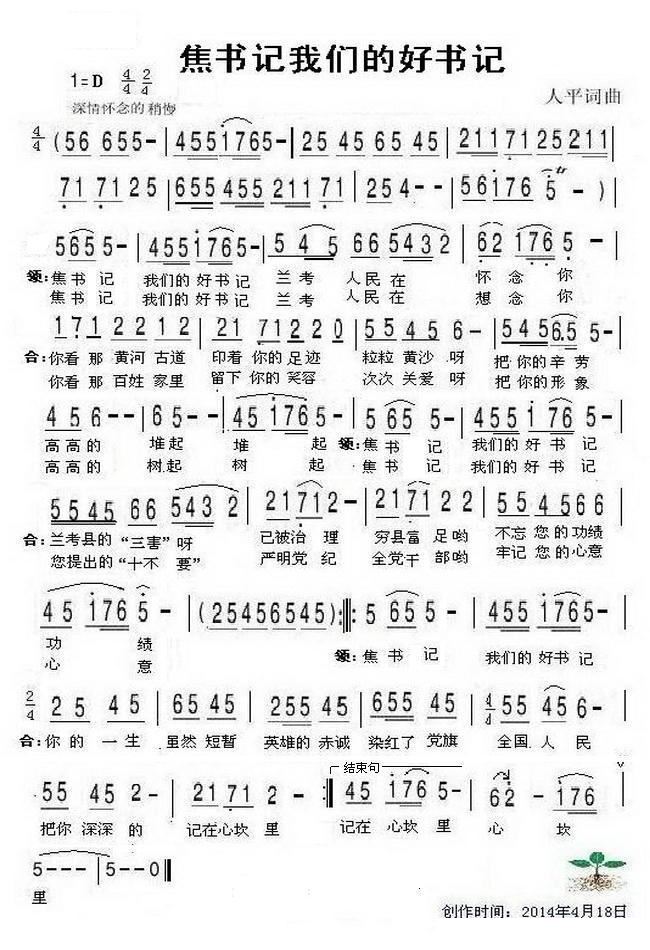 焦书记我们的好书记
1=D 4/4 2/4
深情怀念的 稍慢
人平词曲
4/4 (56 655- | 4551765- | 25 45 65 45 | 2117125211
71 7125 | 655 455 211 71 | 254-- | 56176 5 - )
5655- | 4551765- | 5 45 665432 | 62 176 5 -
领: 焦书记 我们的好书记 兰考 人民在 怀念你
焦书记 我们的好书记 兰考 人民在 想念你
171 2212 | 21 71220 | 55456- | 545 6.55
合: 你看那 黄河古道 印着你的足迹 粒粒黄沙呀 把你的辛劳
你看那 百姓家里 留下你的笑容 次次关爱呀 把你的形象
456-- | 65-- | 451765- | 5 655- | 4551765-
高高的 堆起 堆 起 领: 焦书记 我们的好书记
高高的 树起 树 起 焦书记 我们的好书记
5545 66 5432 | 21712- | 2171 22 | 5545666
合: 兰考县的 “三害”呀 已被治理 穷县富足哟 不忘您的功绩
您提出的“十不要” 严明党纪 全党干部哟 牢记您的心意
45 176 5 - | (25456545) :||: 5 655- | 455 1765- |
功 绩 领: 焦书记 我们的好书记
心 意
2/4 25 45 | 65 45 | 255 45 | 655 45 | 4/4 55 456-
合: 你的一生 虽然短暂 英雄的赤诚 染红了党旗 全国人民
结束句
55 452- | 21712- :|| 45 1765- | 62 - 176
把你深深的 记在心坎里 记在心坎里 心 坎
5--- | 5--0 ||
里
创作时间：2014年4月18日